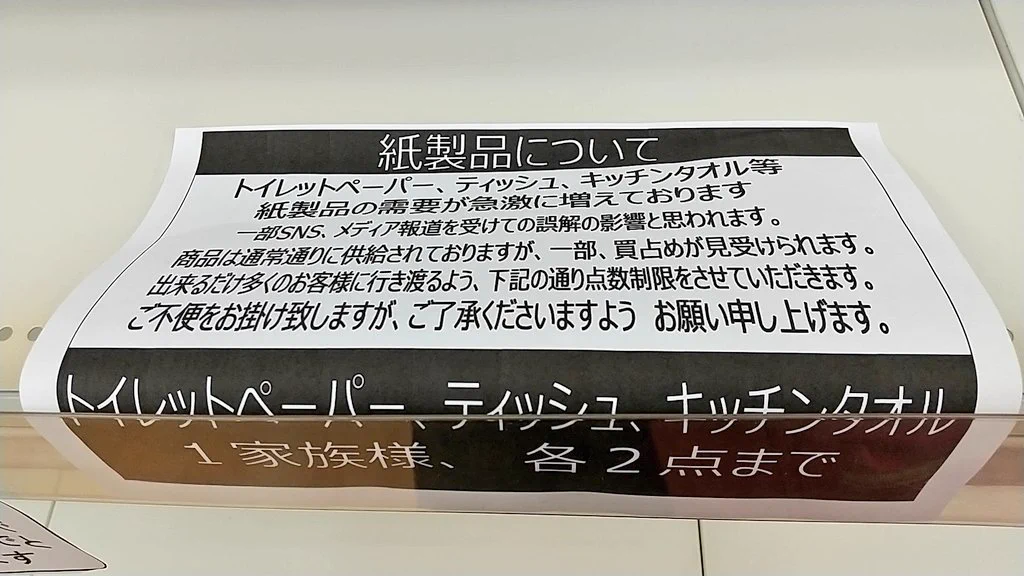 紙製品について
トイレットペーパー、ティッシュ、キッチンタオル等
紙製品の需要が急激に増えております
一部SNS、メディア報道を受けての誤解の影響と思われます。
商品は通常通りに供給されておりますが、一部、買占めが見受けられます。
出来るだけ多くのお客様に行き渡るよう、下記の通り点数制限をさせていただきます。
ご不便をお掛け致しますが、ご了承くださいますよう お願い申し上げます。
トイレットペーパー、ティッシュ、キッチンタオル
1家族様、 各2点まで